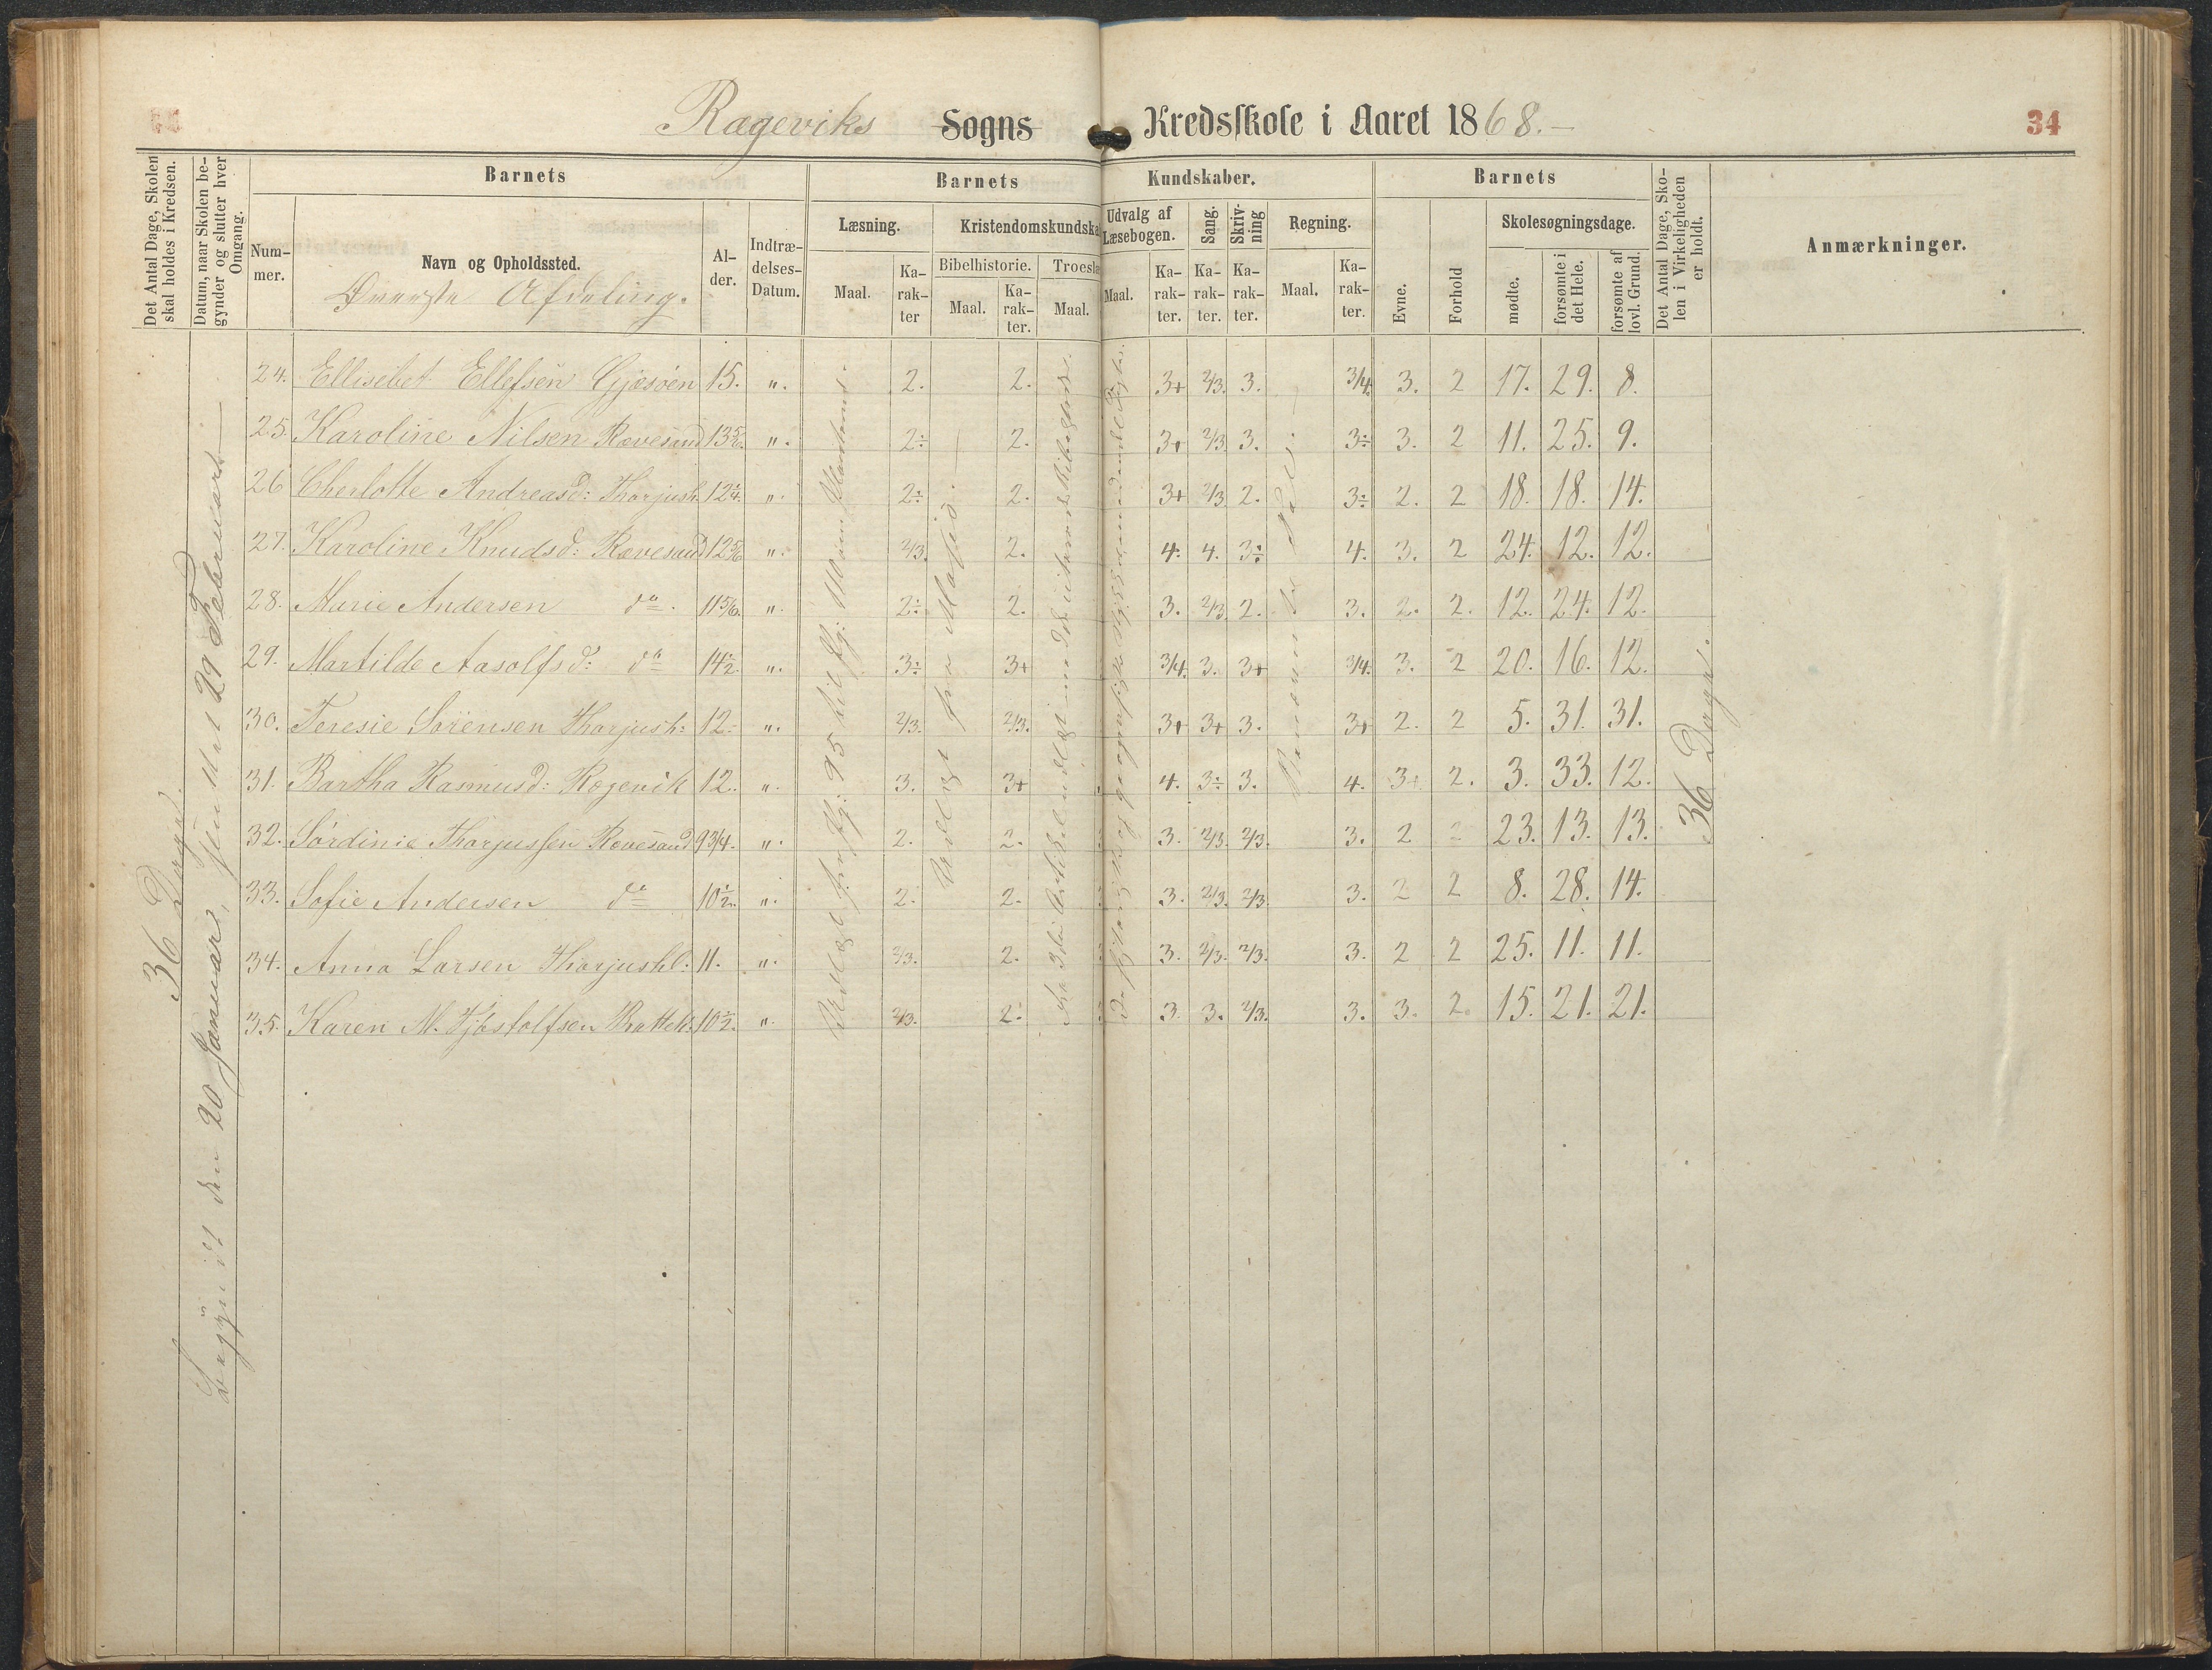 Rageviks Sogns Kredsskole i Aaret 1868.
34
Det Antal Dage, Skolen skal holdes i Kredsen.
Datum, naar Skolen begynder og slutter hver Omgang.
Barnets
Barnets Kundskaber.
Barnets
Det Antal Dage, Skolen i Virkeligheden er holdt.
Anmærkninger.
Nummer.
Navn og Opholdssted.
Øverste Afdeling.
Alder.
Indtrædelses-Datum.
Læsning.
Kristendomskundska
Udvalg af Læsebogen.
Sang.
Skrivning
Regning.
Skolesøgningsdage.
Maal.
Karakter
Bibelhistorie.
Troeslæ
Maal.
Karakter.
Maal.
Maal.
Karakter.
Karakter.
Karakter.
Maal.
Karakter.
Evne.
Forhold
mødte.
forsømte i det Hele.
forsømte af lovl. Grund.
24. Ellisebet Ellefsen Gjæsøen 15. ". 2. 2. 3+ 2/3. 3. 3/4. 3. 2 17. 29. 8.
25. Karoline Nilsen Rævesand 13 5/6. ". 2÷ 2. 3+ 2/3 3. 3÷ 3. 2 11. 25. 9.
26 Cherlotte Andreasd: Thorjush. 12 1/4. ". 2÷ 2. 3+ 2/3 2. 3÷ 2. 2 18. 18. 14.
27. Karoline Knudsd: Rævesand 12 5/6 ". 2/3. 2. 4. 4. 3÷ 4. 3. 2 24. 12. 12.
28. Marie Andersen do. 11 5/6. ". 2÷ 2. 3. 2/3 2. 3. 2. 2. 12. 24. 12.
29. Martilde Aasolfsd: do 14 1/2. ". 3÷ 3+ 3/4. 3. 3+ 3/4. 3. 2 20. 16. 12.
30. Teresie Sørensen Thorjush: 12. ". 2/3. 2/3. 3+ 3+ 3. 3+ 2. 2 5. 31. 31.
31. Bertha Rasmusd: Rægevik 12. ". 3. 3+ 4. 3÷ 3. 4. 3+ 2. 3. 33. 12.
32. Sørdinie Thorjussen Rævesand 9 3/4. ". 2. 2. 3. 2/3 2/3. 3. 2 2 23. 13. 13.
33. Sofie Andersen do 10 1/2. ". 2. 2. 3. 2/3. 2/3. 3. 2 2 8. 28. 14.
34. Anna Larsen Thorjushl: 11. ". 2/3. 2. 3. 2/3. 2/3. 3. 2 2 25. 11. 11.
35. Karen M. Hjøstolfsen Brattekl. 10 1/2. ". 2/3. 2. 3. 3. 2/3. 3. 3. 2. 15. 21. 21.
36 Dage.
Begyndt den 20 Januar, sluttet 29 Februar
36 Dage.